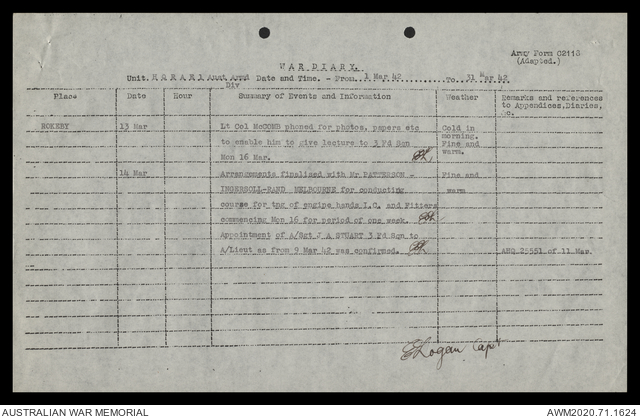 Army Form C2118
(Adapted.)
WAR DIARY.
Unit. H Q R A E 1 Aust Armd Div Date and Time. - From 1 Mar 42 To 31 Mar 42
Place Date Hour Summary of Events and Information Weather Remarks and references to Appendices, Diaries, &c.
13 Mar Lt Col McCOMB phoned for photos, papers etc Cold in
to enable him to give lecture to 3 Fd Sqn morning.
Mon 16 Mar. Fine and warm.
14 Mar Arrangements finalised with Mr PATTERSON - Fine and
INGERSOLL-RAND MELBOURNE for conducting warm
course for tng of engine hands I.C. and Fitters
commencing Mon 16 for period of one week.
Appointment of A/Sgt J A STUART 3 Fd Sqn to
A/Lieut as from 9 Mar 42 was confirmed. AHQ 25551 of 11 Mar.
Logan Capt
AUSTRALIAN WAR MEMORIAL AWM2020.71.1624